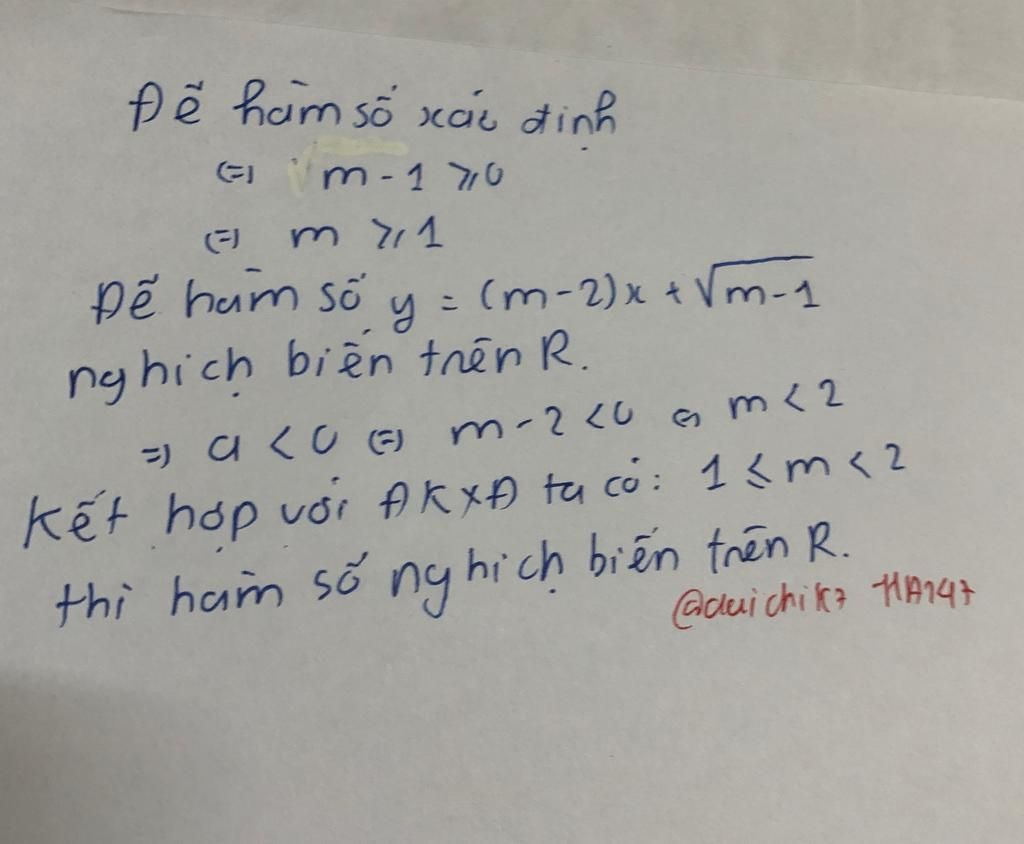 Để hàm số xác định
(=) m - 1 ≥ 0
(=) m ≥ 1
Để hàm số y = (m-2)x + √m-1
nghịch biến trên R.
=) a < 0 (=) m - 2 < 0 (=) m < 2
Kết hợp với ĐKXĐ ta có: 1 ≤ m < 2
thì hàm số nghịch biến trên R.